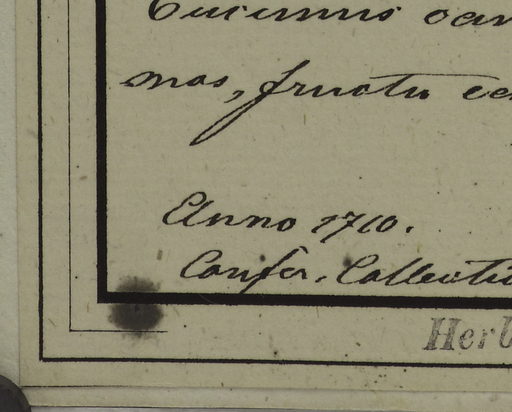 Cucumis
mas, fructu
Anno 1710.
Confer. Collectio
Herb